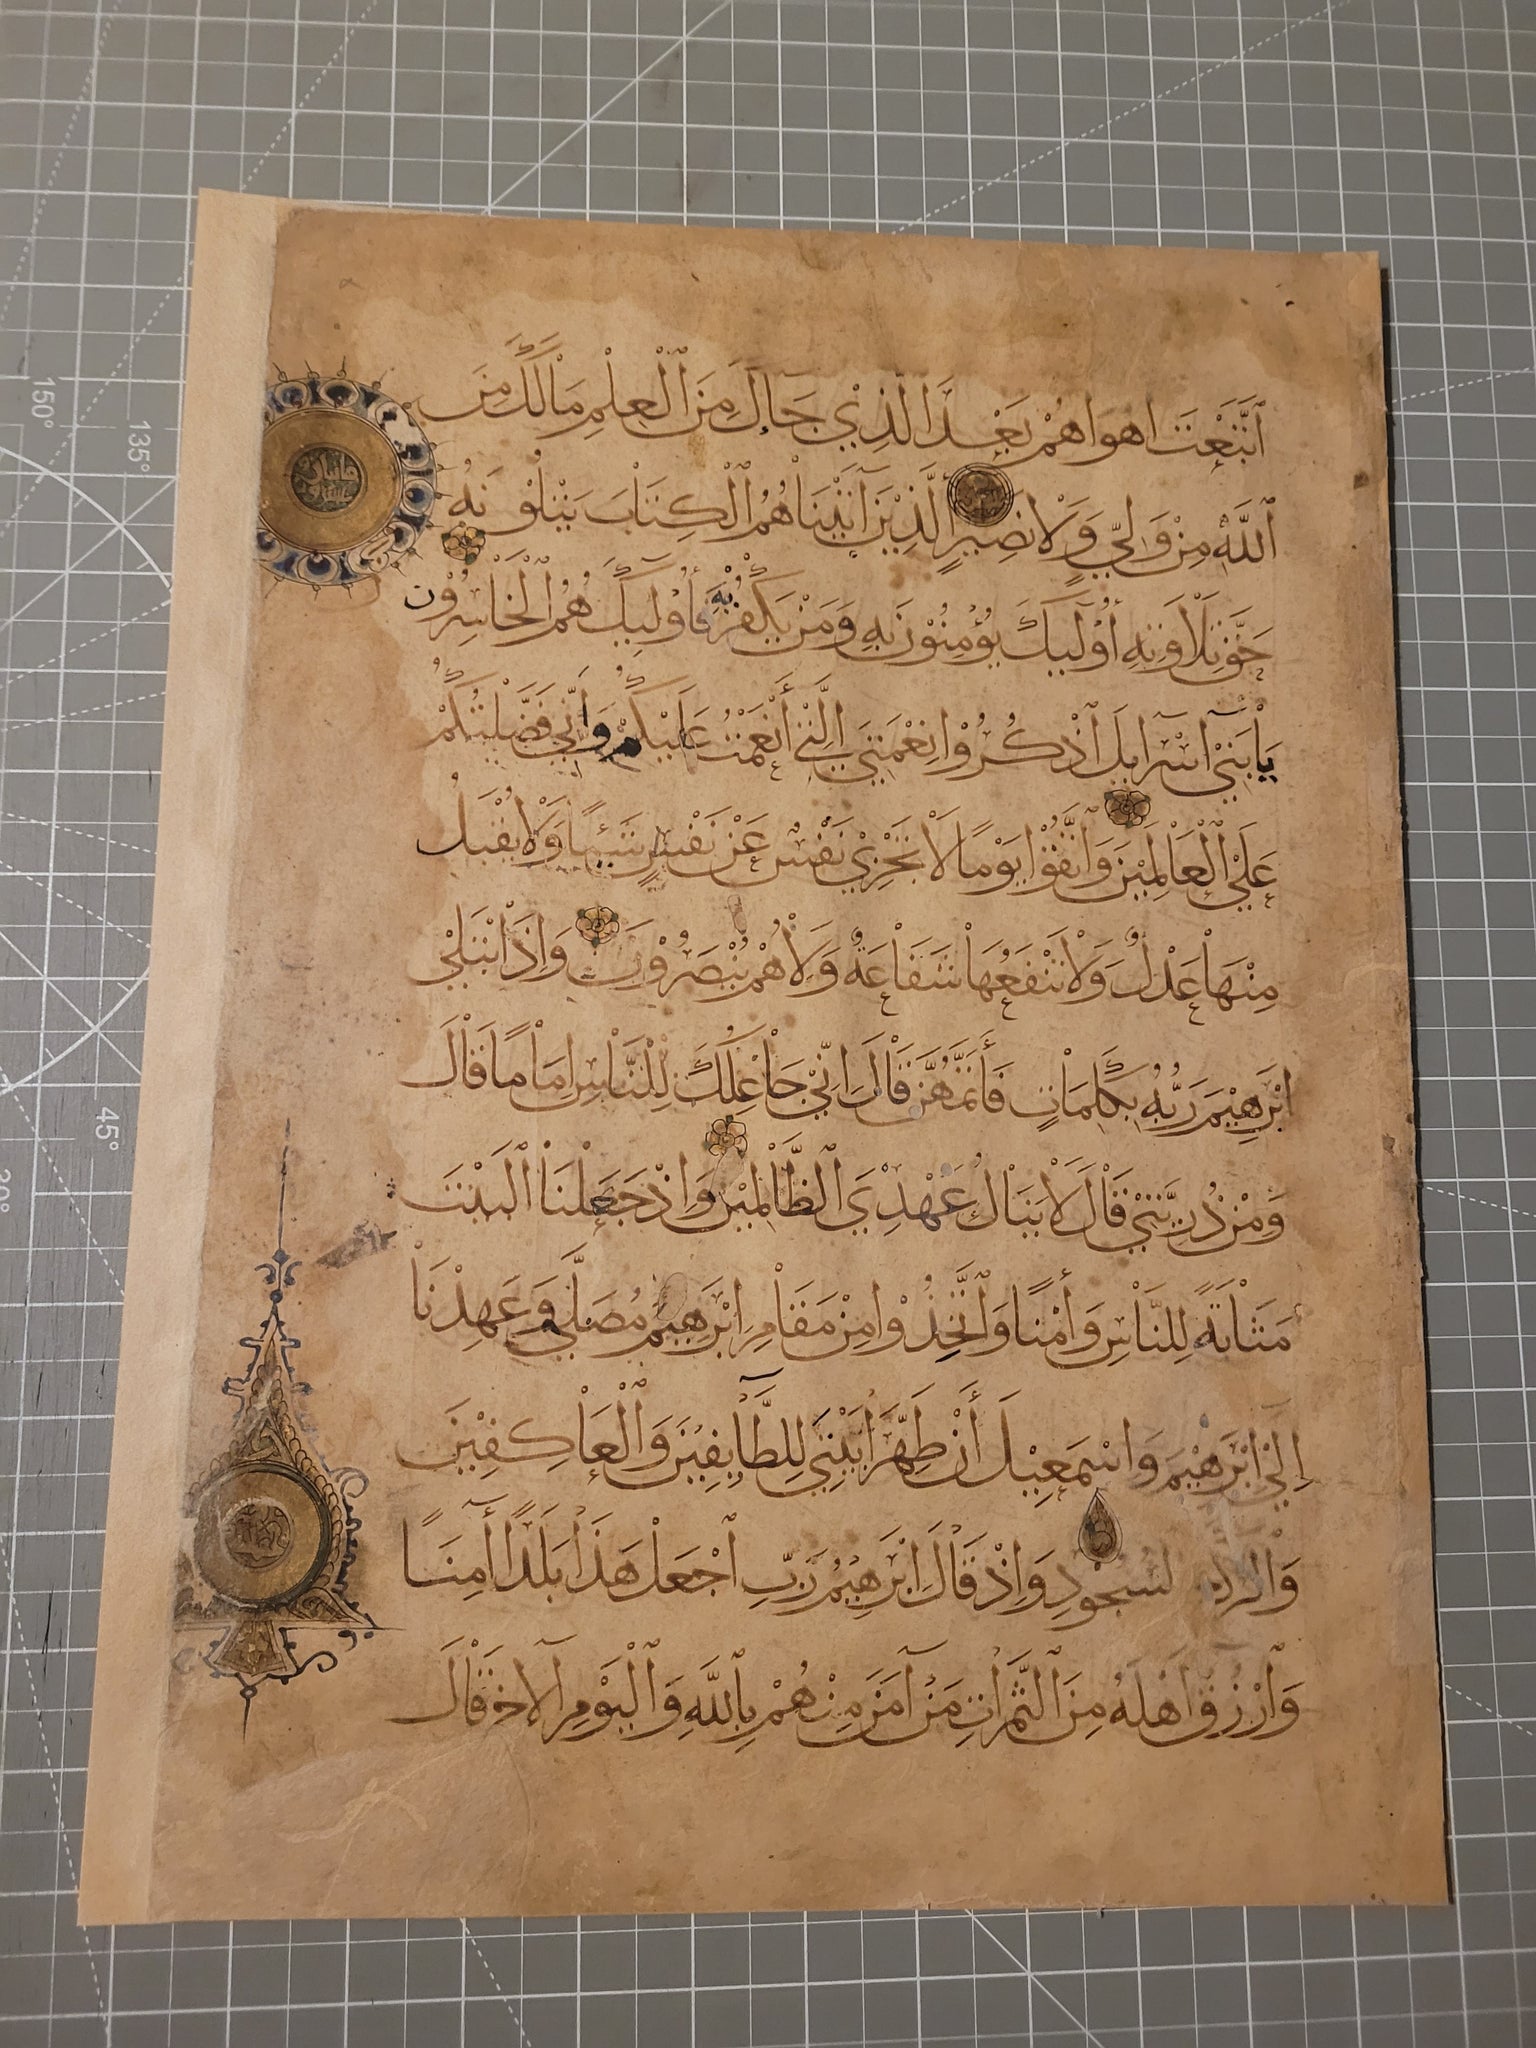 اَتَّبَعْتَ اَهْوَاهُمْ بَعْدَ الَّذِيْ جَآكَ مِنَ الْعِلْمِ مَالَكَ مِنَ
اللَّهِ مِنْ وَلِيٍّ وَلَا نَصِيْرٍ اَلَّذِيْنَ آتَيْنَاهُمُ الْكِتَابَ يَتْلُوْنَهُ
حَقَّ تِلَاوَتِهِ أُوْلَٓيِكَ يُؤْمِنُوْنَ بِهِ وَمَنْ يَكْفُرْ بِهِ فَأُوْلَٓيِكَ هُمُ الْخَاسِرُوْن
يَابَنِيْ اسْرَآيِلَ اذْكُرُوْا نِعْمَتِيَ الَّتِيْ أَنْعَمْتُ عَلَيْكُمْ وَاَنِّي فَضَّلْتُكُمْ
عَلَيْ الْعَالَمِيْنَ وَاتَّقُوْا يَوْمًا لَا تَجْزِيْ نَفْسٌ عَنْ نَفْسٍ شَيْئًا وَلَا يُقْبَلُ
مِنْهَا عَدْلٌ وَلَا تَنْفَعُهَا شَفَاعَةٌ وَلَا هُمْ يُنْصَرُوْنَ وَاِذِ ابْتَلَيْ
اِبْرَهِيْمَ رَبُّهُ بِكَلِمَاتٍ فَأَتَمَّهُنَّ قَالَ اِنِّيْ جَاعِلُكَ لِلنَّاسِ اِمَامًا قَالَ
وَمِنْ ذُرِّيَّتِيْ قَالَ لَا يَنَالُ عَهْدِيَ الظَّالِمِيْنَ وَاِذْ جَعَلْنَا الْبَيْتَ
مَثَابَةً لِلنَّاسِ وَأَمْنًا وَاتَّخِذُوْا مِنْ مَقَامِ اِبْرَهِيْمَ مُصَلًّي وَعَهِدْنَا
اِلَيٓ اِبْرَهِيْمَ وَاسْمَعِيْلَ أَنْ طَهِّرَا بَيْتِيَ لِلطَّآيِفِيْنَ وَالْعَاكِفِيْنَ
وَالر السُّجُوْدِ وَاِذْ قَالَ اِبْرَهِيْمُ رَبِّ اجْعَلْ هَذَا بَلَدًا اٰمِنًا
وَارْزُقْ اَهْلَهُ مِنَ الثَّمَرَاتِ مَنْ آمَنَ مِنْهُمْ بِاللَّهِ وَالْيَوْمِ الْآخِرِ قَالَ